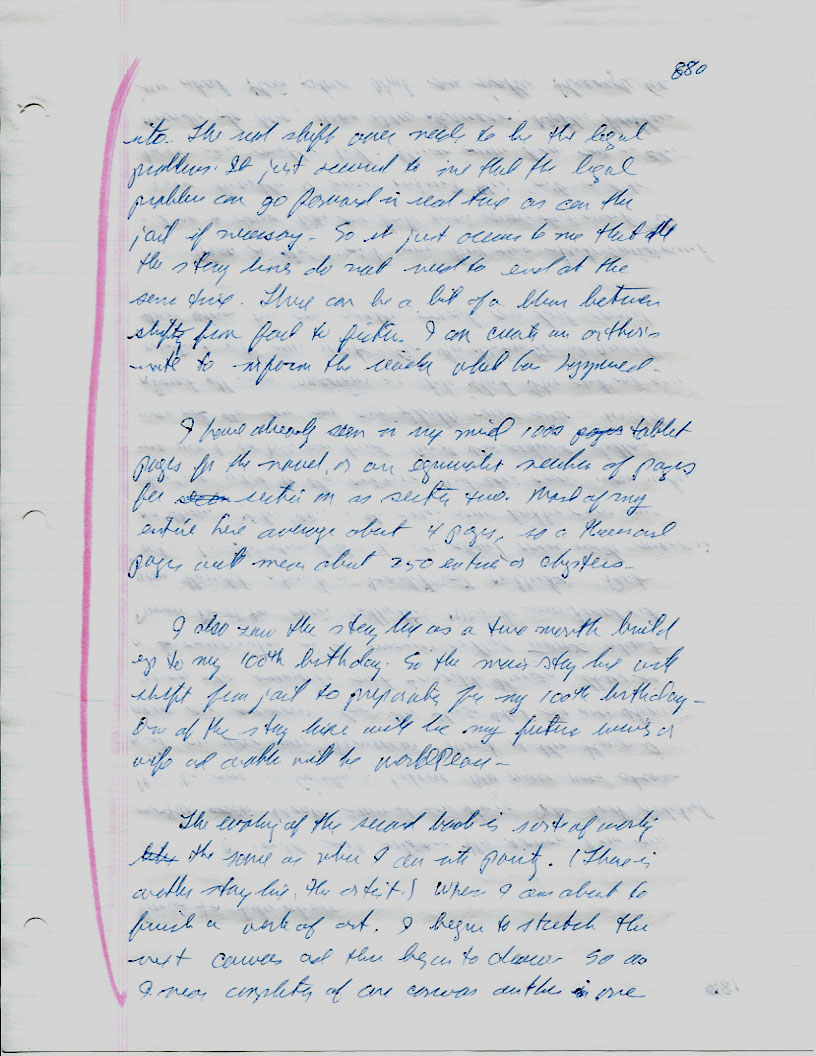 880
into. The real shift over needs to be the legal
problems. It just occurred to me that the legal
problem can go forward in real time as can the
jail if necessary. So it just occurs to me that all
the story lines do not need to end at the
same time. There can be a bit of a blur between
shifts from fact to fiction. I can create an author's
note to inform the reader what has happened.
I have already seen in my mind 1000 pages tablet
pages for the novel, or an equivalent number of pages
for section in as section two. Most of my
entries here average about 4 pages, so a thousand
pages will mean about 250 entries or chapters.
I also saw the story line as a two month build
up to my 100th birthday. So the main story line will
shift from jail to preparation for my 100th birthday -
One of the story lines will be my future wives or
wife and another will be World Peace -
The evolving of the second book is sort of working
like the same as when I am into painting. (There is
another story line. The artist.) When I am about to
finish a work of art. I begin to stretch the
next canvas and then begin to draw. So as
I near completion of one canvas another is one